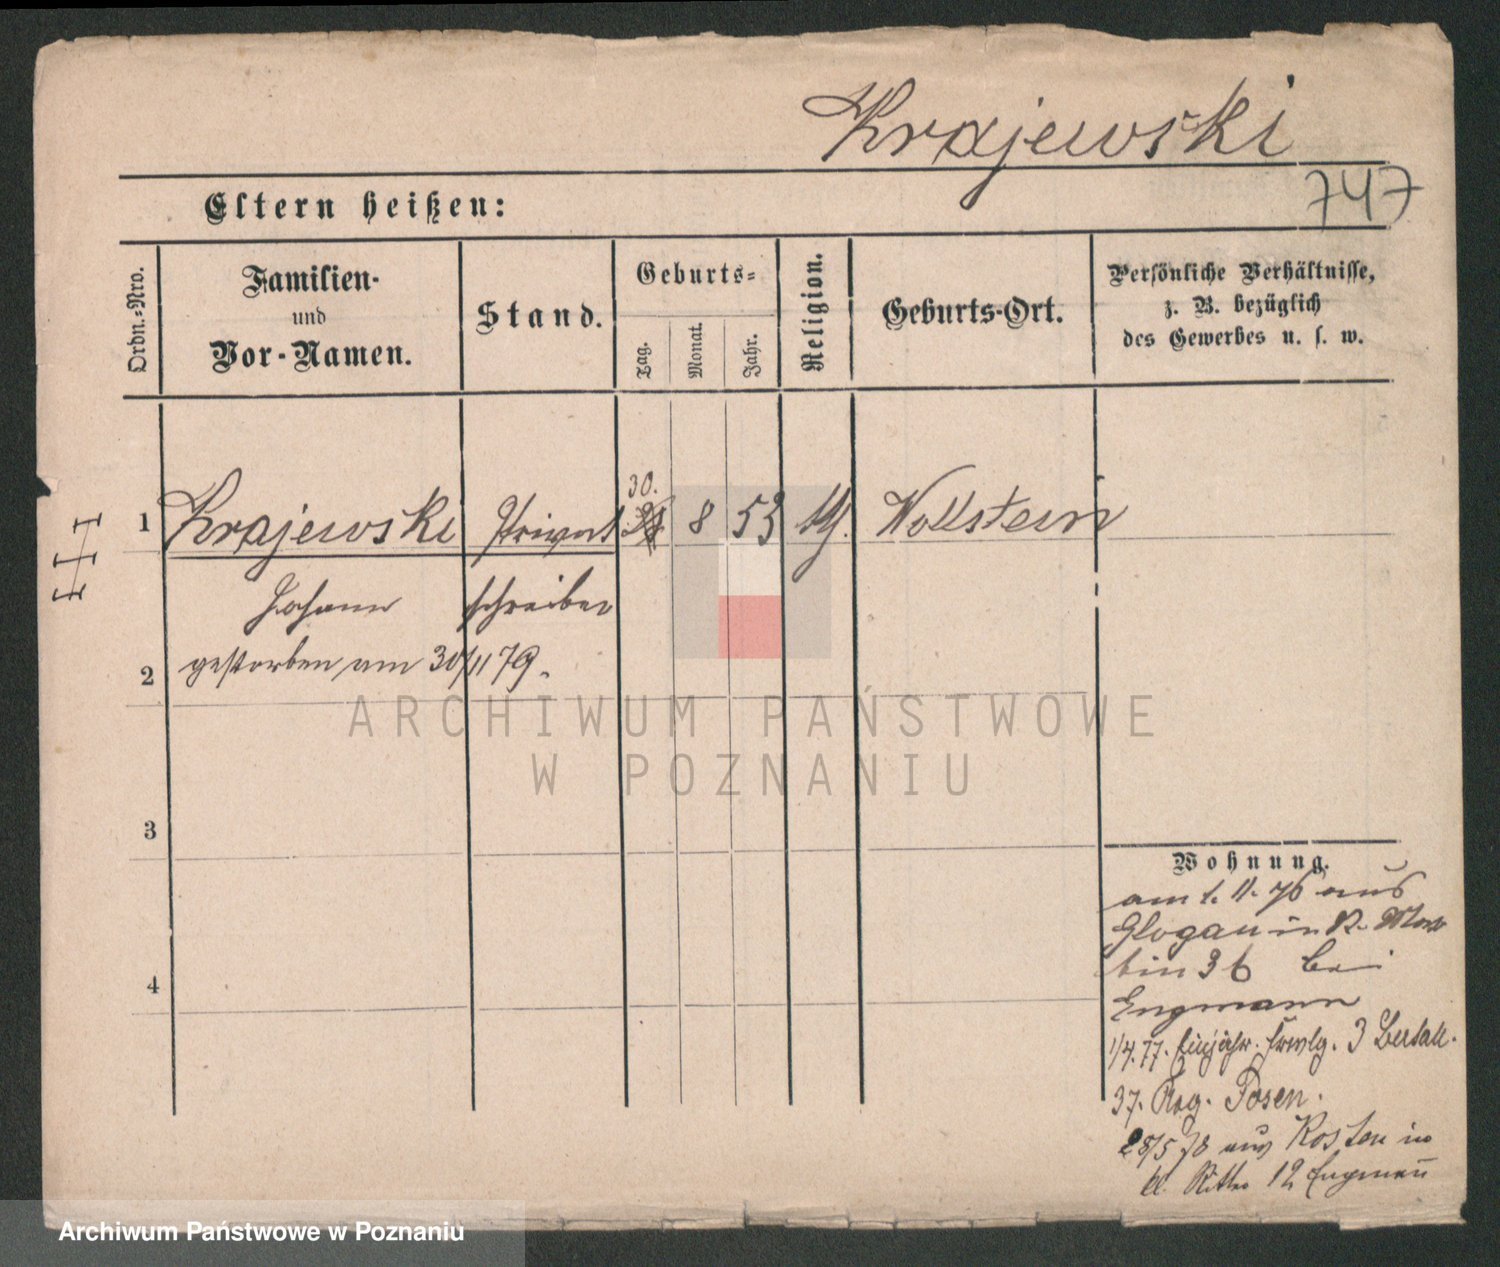 Krajewski
747
Eltern heißen:
Ordn.-Nro.
Familien-
und
Vor-Namen.
Stand.
Geburts-
Tag.
Monat.
Jahr.
Religion.
Geburts-Ort.
Persönliche Verhältnisse,
z. B. bezüglich
des Gewerbes u. s. w.
30.
1 Krajewski Privat 8 53 Wollstein
Johann schreiber
2 gestorben am 30/11 79.
ARCHIWUM PAŃSTWOWE
W POZNANIU
3
Wohnung.
am 1. 11. 76 aus
Glogau in
tin 36 bei
4
Engmann
1/4. 77. Einjähr. Frwlg. 3
37. Reg. Posen.
28/5 78 aus Kosten in
kl. Ritter 12 Engmann
Archiwum Państwowe w Poznaniu